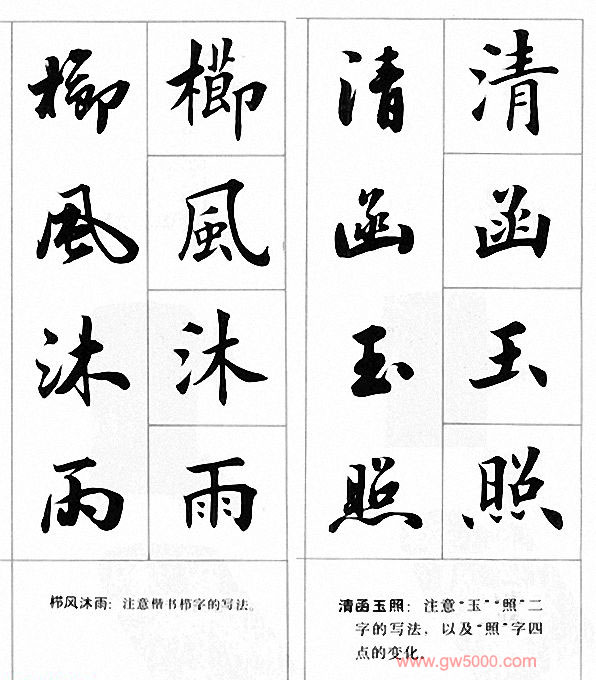 櫛風沐雨
櫛風沐雨
栉风沐雨：注意楷书栉字的写法。
清函玉照
清函玉照
清函玉照：注意“玉”“照”二
字的写法，以及“照”字四
点的变化。
www.gw5000.com